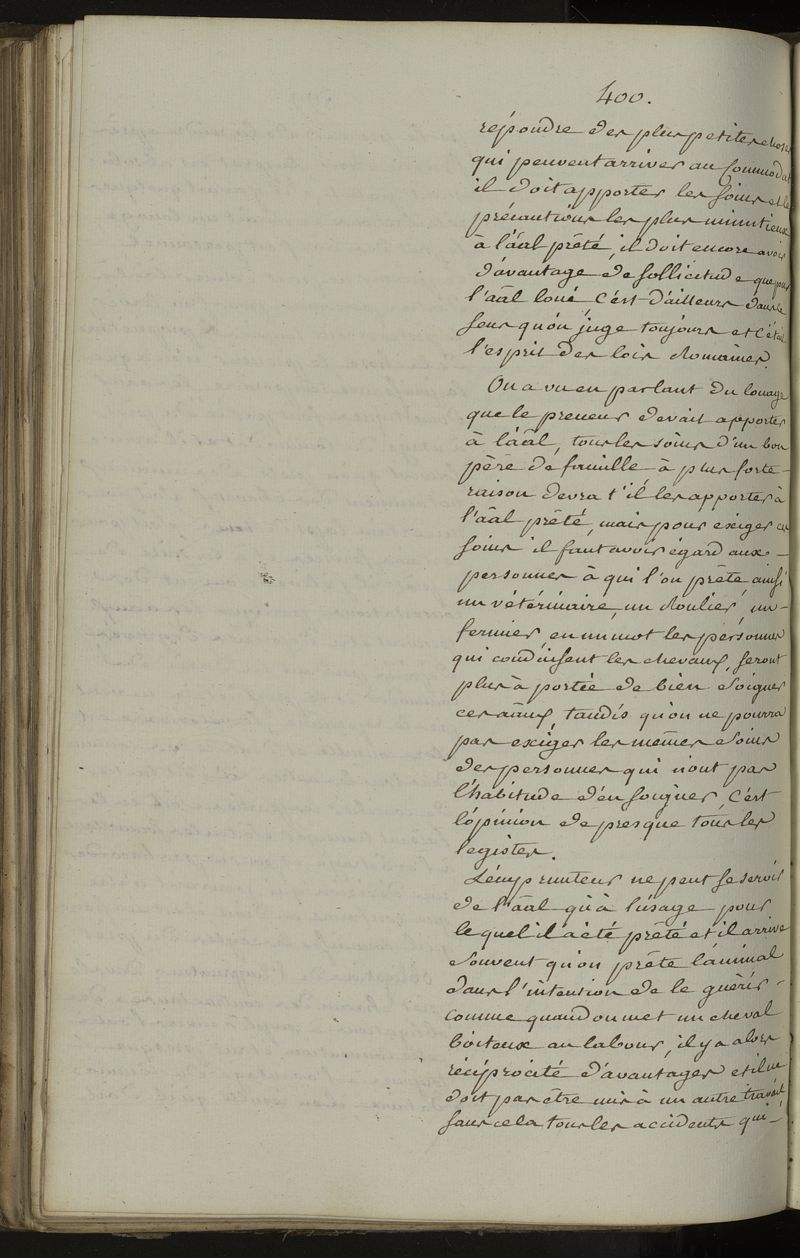 400.
répondre des plus petites choses
qui peuvent arriver au Commodat
il doit apporter les soins et les
précautions les plus minutieux
à l'âal prêté, il doit encore avoir
d'avantage de sollicitude que pour
l'âal loué, C'est d'ailleurs dans ce
sens qu'on juge toujours et c'était
l'esprit des lois Romaines.
On a vu en parlant du louage
que le preneur devait apporter
à l'âal, tous les soins d'un bon
père de famille à plus forte
raison devra t'il les apporter à
l'âal prêté, mais pour exiger ces
soins il faut avoir égard aux
personnes à qui l'on prête, ainsi
un vétérinaire, un Roulier, un
fermier, en un mot les personnes
qui conduisent les chevaux, seront
plus à portée de bien soigner
ces aâux, tandis qu'on ne pourra
pas exiger les mêmes soins
des personnes qui n'ont pas
l'habitude d'en soigner, C'est
l'opinion de presque tous les
legistes.
L'emprunteur ne peut se servir
de l'âal qu'à l'usage pour
lequel il a été prêté et il arrive
souvent qu'on prête l'animal
dans l'intention de le guérir
comme quand on met un cheval
boiteux au labour, il y a alors
réciprocité d'avantages et il ne
doit pas être mis à un autre travail
sans cela tous les accidents qui